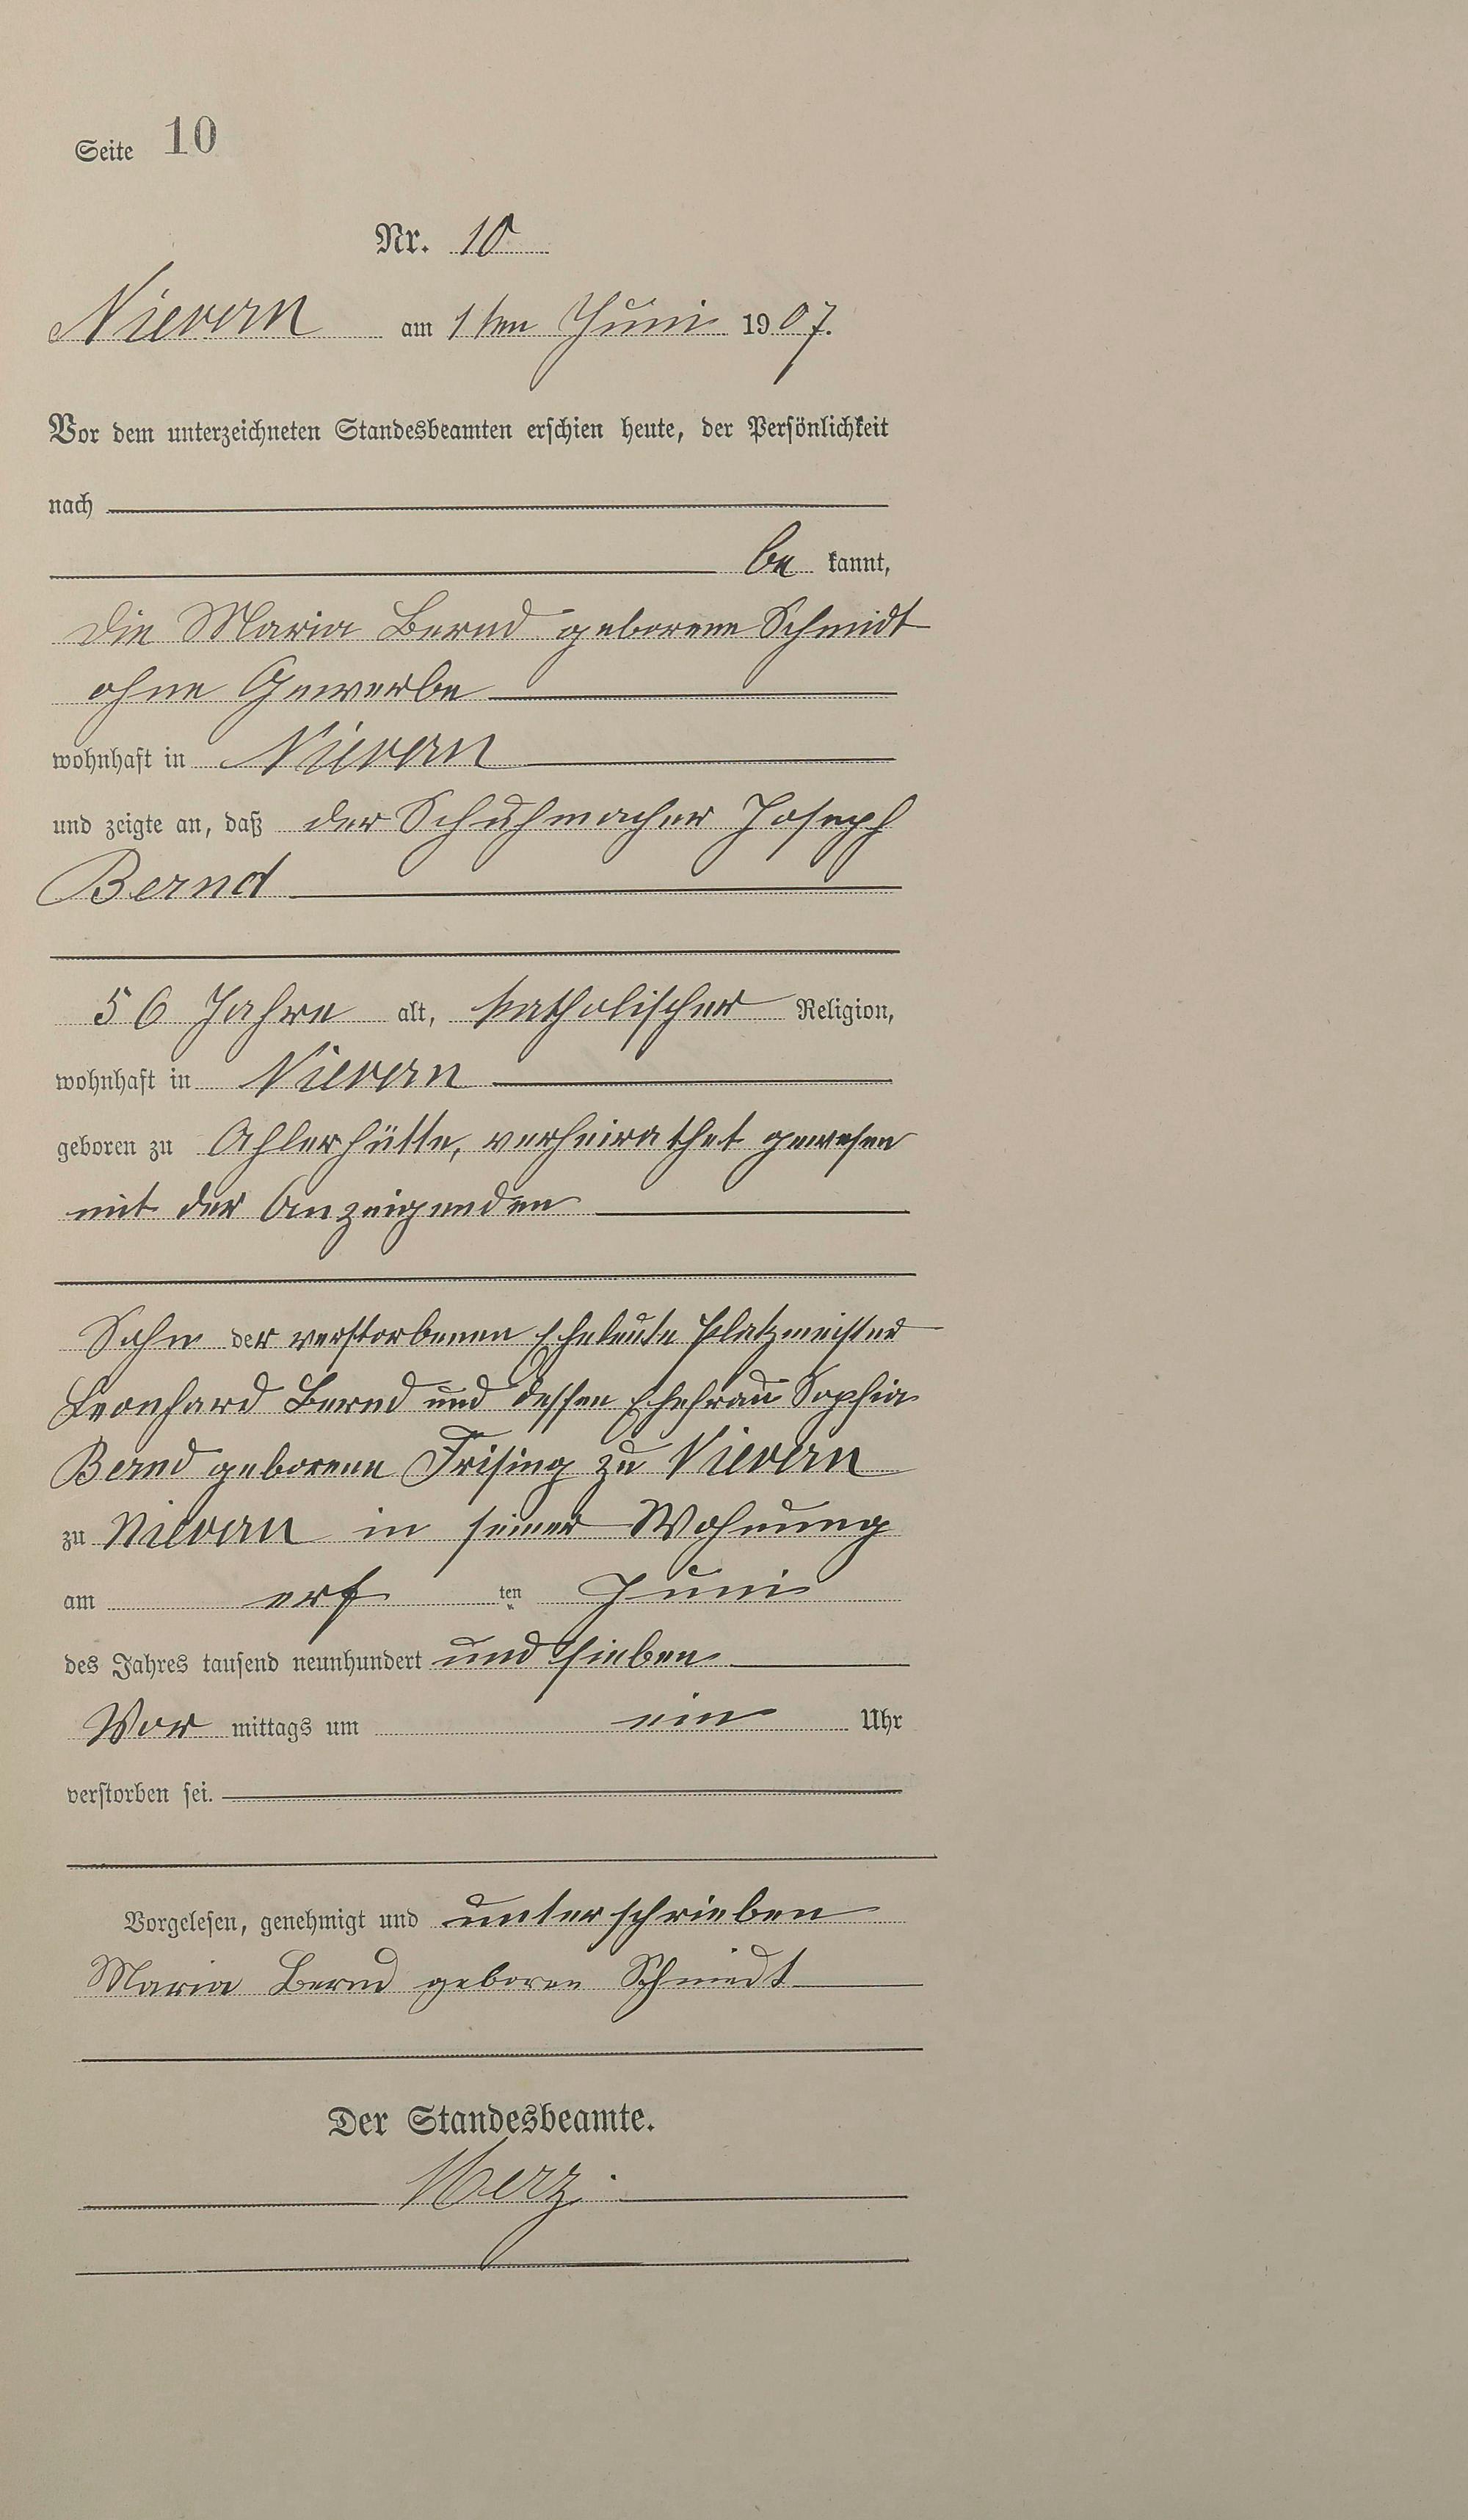 Seite 10
Nr. 10
Nievern am 1ten Juni 1907.
Vor dem unterzeichneten Standesbeamten erschien heute, der Persönlichkeit
nach
be kannt,
die Maria Bernd geborene Schmidt
ohne Gewerbe
wohnhaft in Nievern
und zeigte an, daß der Schuhmacher Joseph
Bernd
56 Jahre alt, katholischer Religion,
wohnhaft in Nievern
geboren zu Ahlerhütte, verheirathet gewesen
mit der Anzeigenden
Sohn der verstorbenen Eheleute Platzmeister
Leonhard Bernd und dessen Ehefrau Sophia
Bernd geborene Frising zu Nievern
zu Nievern in seiner Wohnung
am ers ten Juni
des Jahres tausend neunhundert und sieben
Vor mittags um ein Uhr
verstorben sei.
Vorgelesen, genehmigt und unterschrieben
Maria Bernd geboren Schmidt
Der Standesbeamte.
Merz.